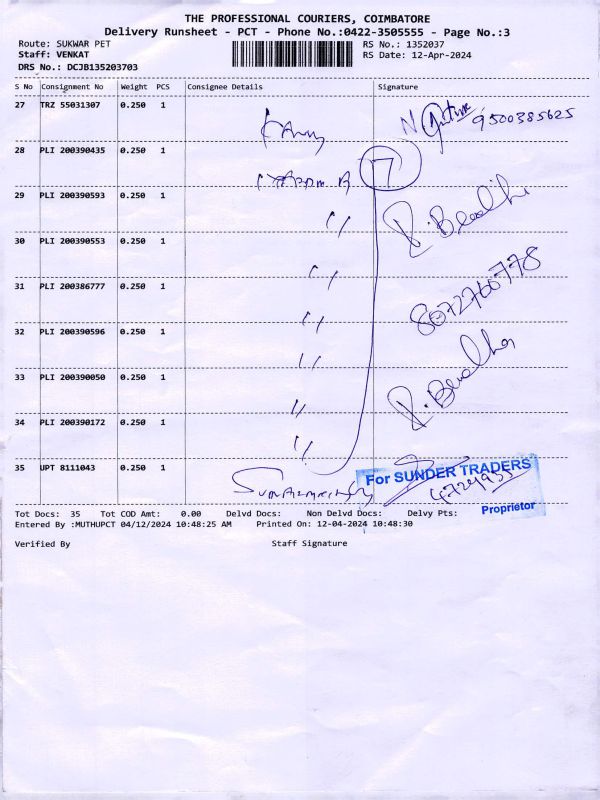 THE PROFESSIONAL COURIERS, COIMBATORE
Delivery Runsheet - PCT - Phone No.:0422-3505555 - Page No.:3
Route: SUKWAR PET RS No.: 1352037
Staff: VENKAT RS Date: 12-Apr-2024
DRS No.: DCJB135203703
S No Consignment No Weight PCS Consignee Details Signature
27 TRZ 55031307 0.250 1
9500385625
28 PLI 200390435 0.250 1
7
29 PLI 200390593 0.250 1 "
30 PLI 200390553 0.250 1 "
31 PLI 200386777 0.250 1 "
8072760778
32 PLI 200390596 0.250 1 "
33 PLI 200390050 0.250 1 "
34 PLI 200390172 0.250 1 "
35 UPT 8111043 0.250 1
For SUNDER TRADERS
Proprietor
Tot Docs: 35 Tot COD Amt: 0.00 Delvd Docs: Non Delvd Docs: Delvy Pts:
Entered By :MUTHUPCT 04/12/2024 10:48:25 AM Printed On: 12-04-2024 10:48:30
Verified By Staff Signature